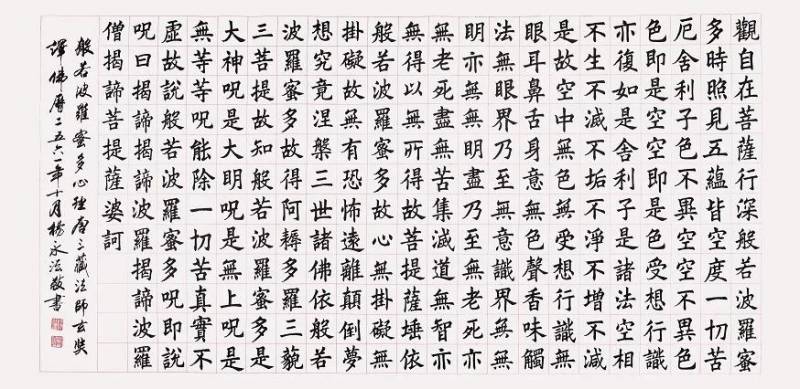 觀自在菩薩行深般若波羅蜜
多時照見五蘊皆空度一切苦
厄舍利子色不異空空不異色
色即是空空即是色受想行識
亦復如是舍利子是諸法空相
不生不滅不垢不淨不增不減
是故空中無色無受想行識無
眼耳鼻舌身意無色聲香味觸
法無眼界乃至無意識界無無
明亦無無明盡乃至無老死亦
無老死盡無苦集滅道無智亦
無得以無所得故菩提薩埵依
般若波羅蜜多故心無掛礙無
掛礙故無有恐怖遠離顛倒夢
想究竟涅槃三世諸佛依般若
波羅蜜多故得阿耨多羅三藐
三菩提故知般若波羅蜜多是
大神呪是大明呪是無上呪是
無等等呪能除一切苦真實不
虛故說般若波羅蜜多呪即說
呪曰揭諦揭諦波羅揭諦波羅
僧揭諦菩提薩婆訶
般若波羅蜜多心經唐三藏法師玄奘
譯佛曆二五六一年十月楊永法敬書